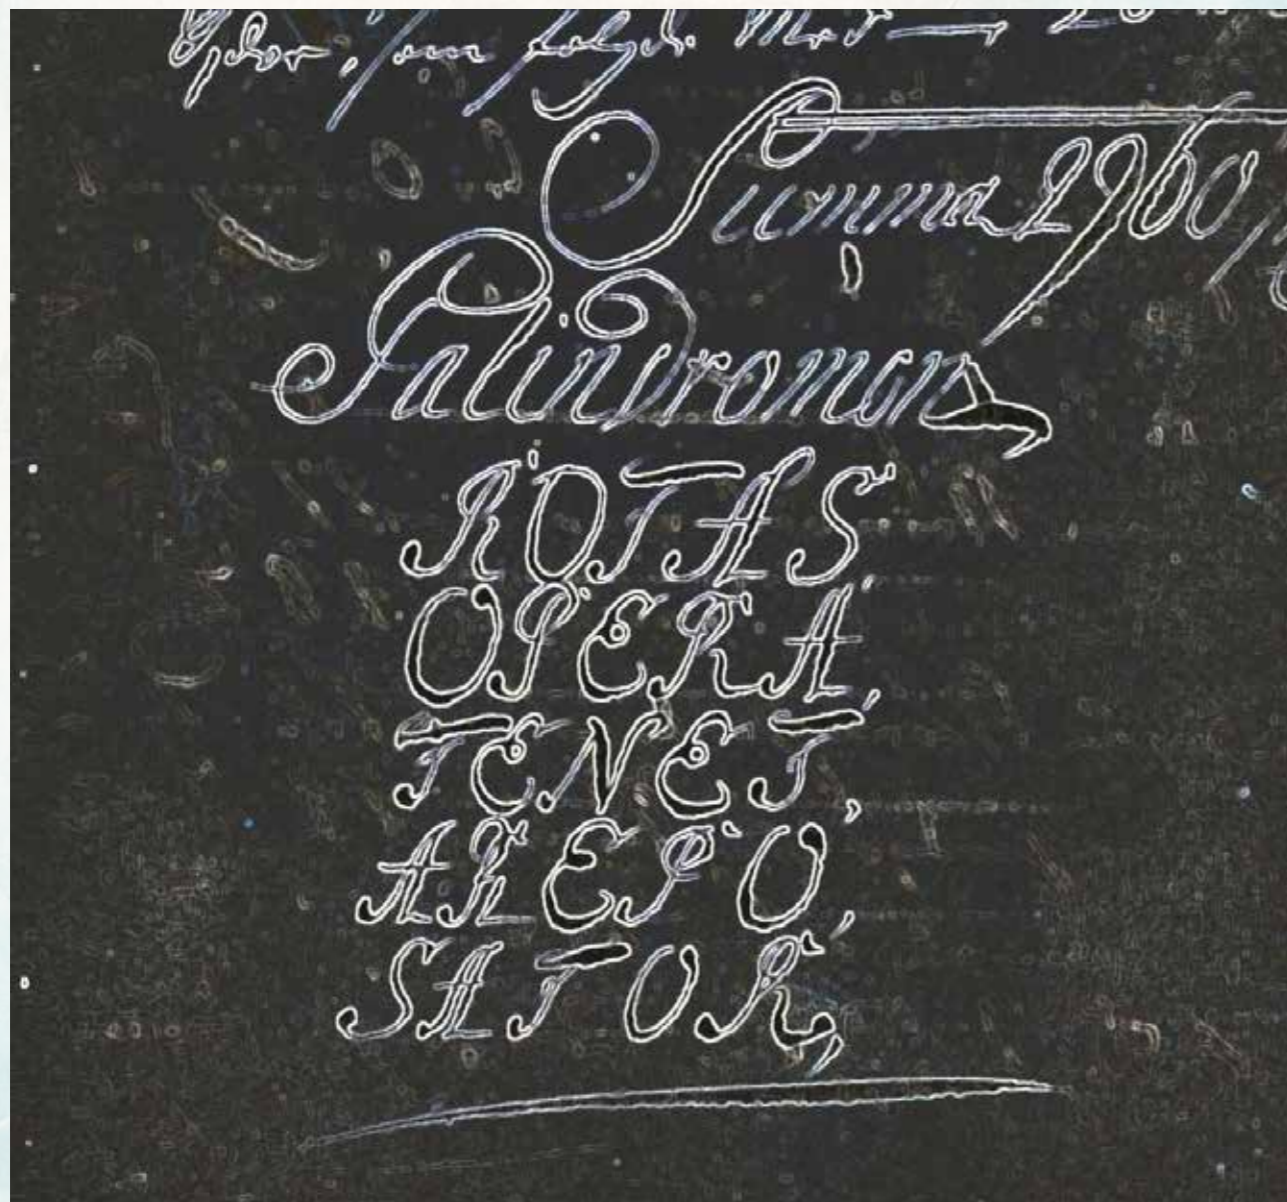 Summa 2960,
Palindromon
ROTAS
OPERA,
TENET,
AREPO,
SATOR,